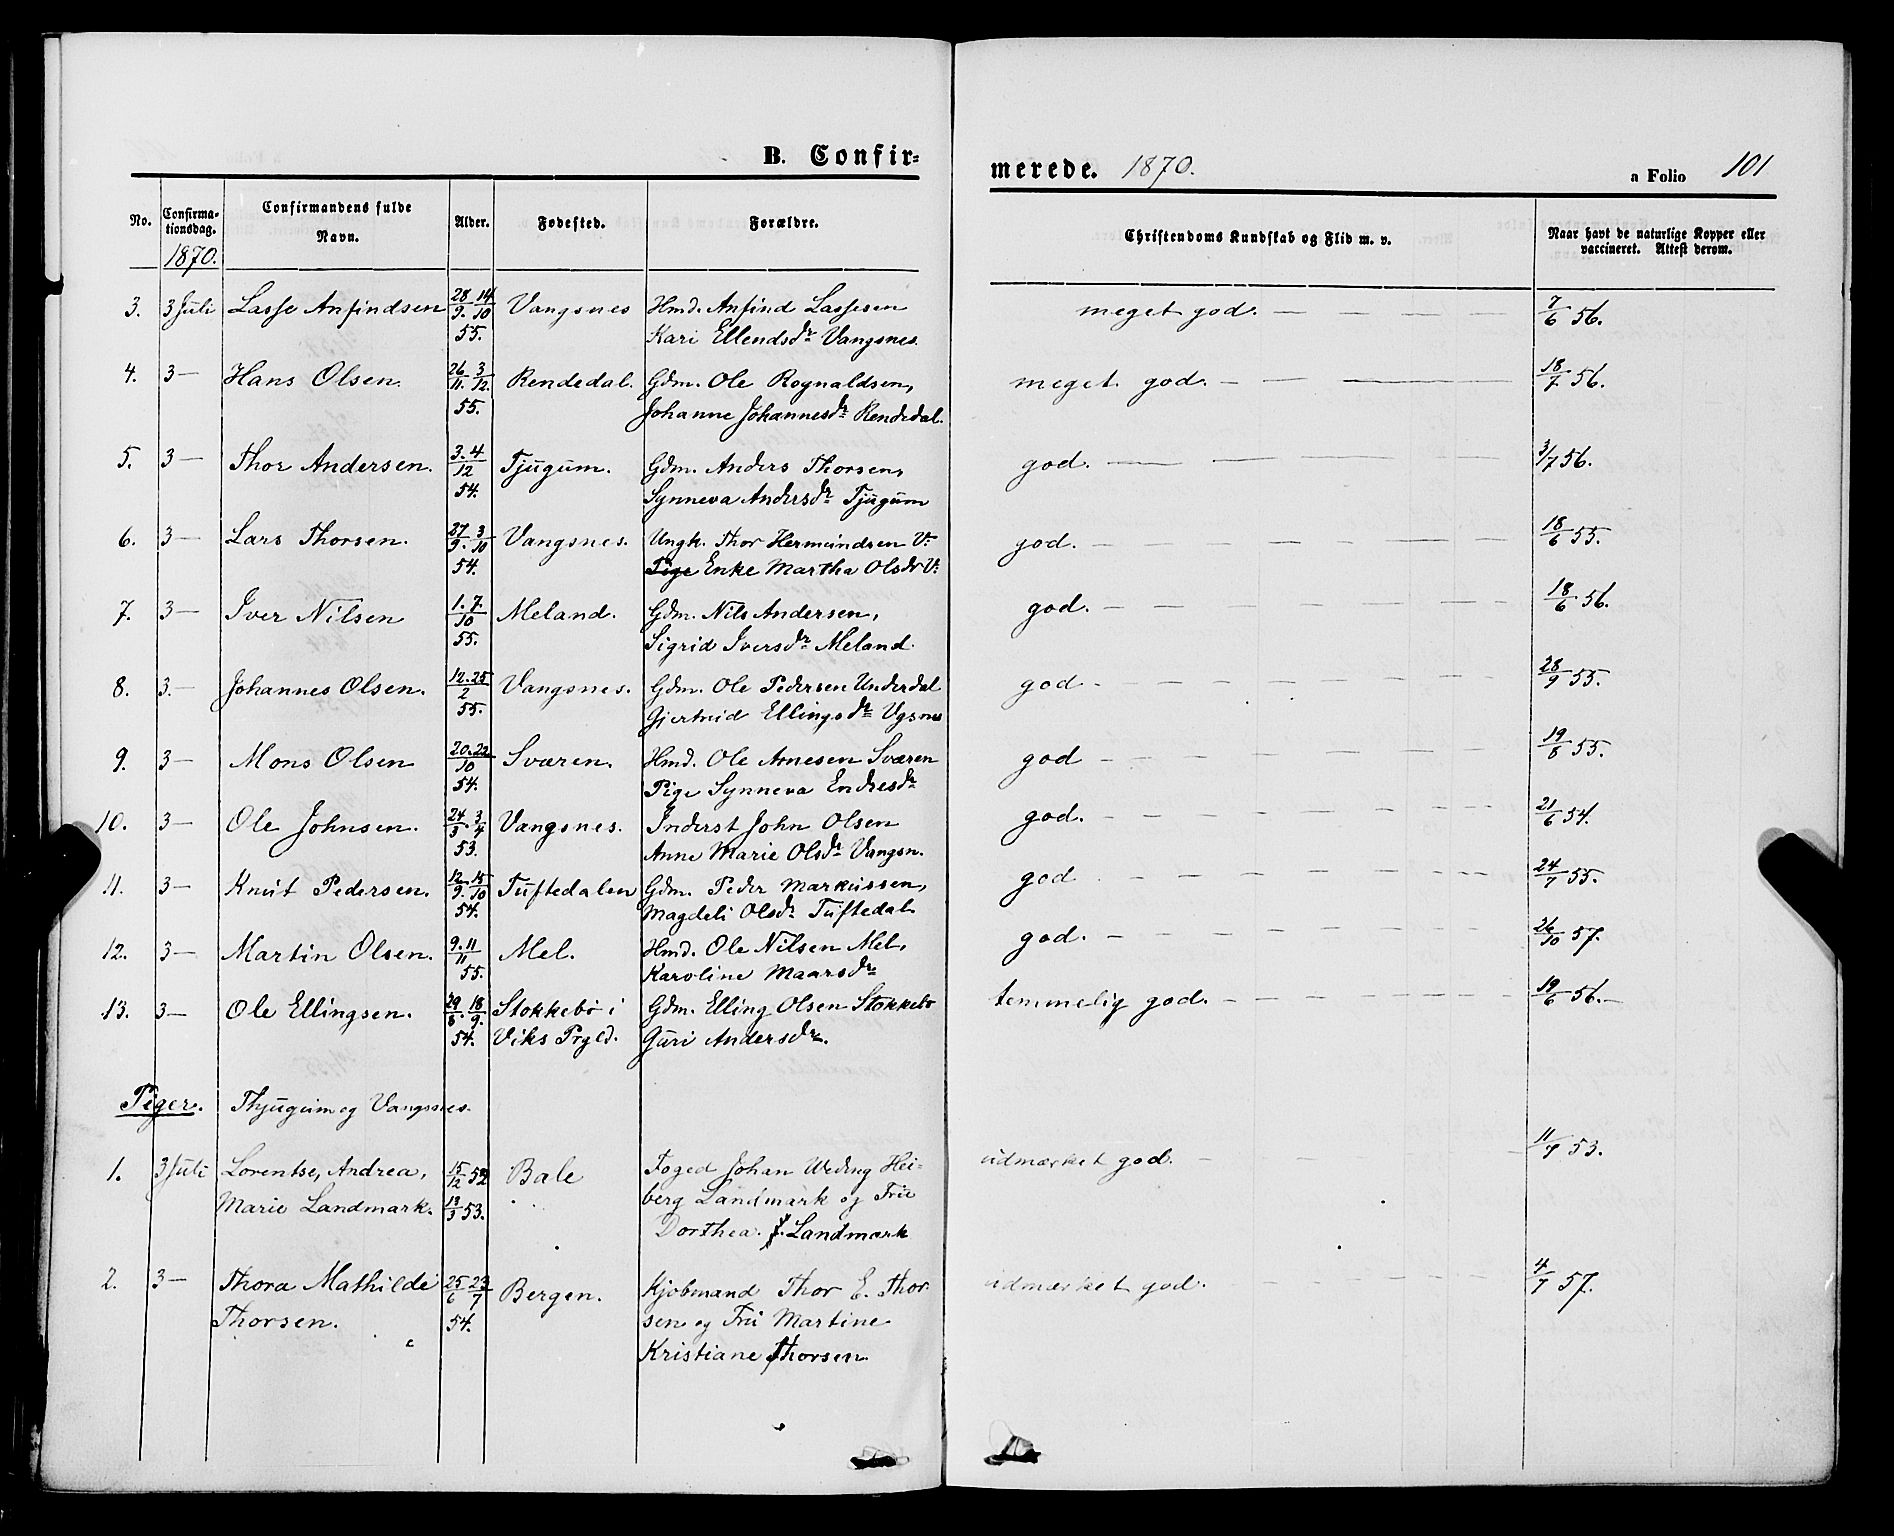 B. Confir-
merede. 1870.
a Folio 101
No.
Confirma-
tionsdag.
1870.
Confirmandens fulde
Navn.
Alder.
Fødested.
Forældre.
Christendoms Kundskab og Flid m. v.
Naar havt de naturlige Kopper eller
vaccineret. Attest derom.
3. 3 Juli Lasse Anfindsen 28/9. 14/10 Vangsnes Hmd. Anfind Lassesen meget god. — 7/6 56.
55. Kari Ellendsdr Vangsnes.
4. 3— Hans Olsen. 26/11. 3/12. Rendedal. Gdm. Ole Rognaldsen, meget god. — 18/7 56.
55. Johanne Johannesdr Rendedal.
5. 3— Thor Andersen. 3.4/12 Tjugum. Gdm. Anders Thorsen, god. — 3/7 56.
54. Synneva Andersdr Tjugum
6. 3— Lars Thorsen. 27/9. 3/10 Vangsnes. Ungk. Thor Hermundsen V: god. — 18/6 55.
54. Pige Enke Martha Olsdr V:
7. 3— Iver Nilsen 1.7./10 Meland. Gdm. Nils Andersen, god. — 18/6 56.
55. Sigrid Iversdr Meland.
8. 3.— Johannes Olsen. 12.25/2 Vangsnes. Gdm. Ole Pedersen Underdal god — 28/9 55.
55. Gjertrud Ellingsdr Vgsnes
9. 3— Mons Olsen 20.22/10 Sværen. Hmd. Ole Arnesen Sværen god — 19/8 55.
54. Pige Synneva Endresdr
10. 3— Ole Johnsen. 24/3. 3/4 Vangsnes. Inderst John Olsen god. — 21/6 54.
53. Anne Marie Olsdr Vangsn.
11. 3— Knut Pedersen. 12/9. 15/10 Tuftedalen Gdm. Peder Markussen, god — 24/7 55.
54. Magdeli Olsdr Tuftedal.
12. 3— Martin Olsen. 9.11/11 Mel. Hmd. Ole Nilsen Mel, god. — 26/10 57.
55. Karoline Maarsdr
13. 3— Ole Ellingsen. 29/8. 18/9. Stokkebø i Gdm. Elling Olsen Stokkebø temmelig god. — 19/6 56.—
54. Viks Prgld. Guri Andersdr.
Piger. Thjugum og Vangsnes.
1. 3 Juli Lorentse, Andrea, 15/12 52 Bale Foged Johan Widing Hei- udmærket god. — 11/7 53.
Marie Landmark. 13/3 53. berg Landmark og Fru
Dorthea f. Landmark
2. 3— Thora Mathilde 25/6 23/7 Bergen. Kjøbmand Thor E. Thor- udmærket god. — 4/7 57.
Thorsen. 54. sen og Fru Martine
Kristiane Thorsen.